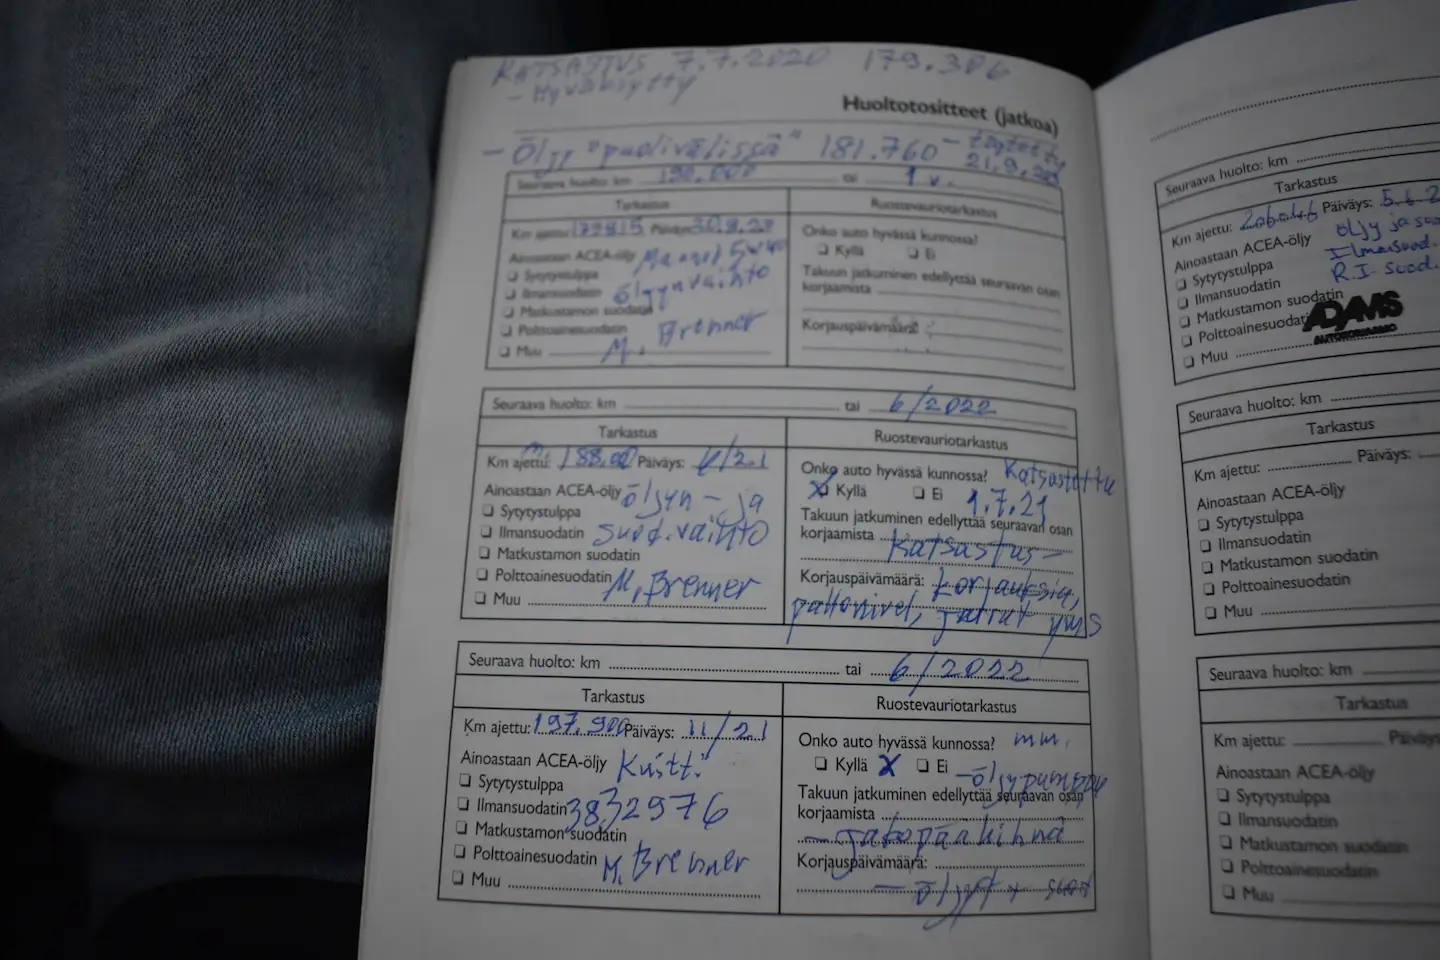 KATSASTUS 7.7.2020 179.306
- Hyväksytty
Huoltotositteet (jatkoa)
- Öljy "puolivälissä" 181.760 - täytetty
21.9.
Seuraava huolto: km 190.000 tai 1 v.
Tarkastus Ruostevauriotarkastus
Km ajettu: 179815 Päiväys: 30.8.20
Onko auto hyvässä kunnossa?
Ainoastaan ACEA-öljy 5W40
❑ Kyllä ❑ Ei
❑ Sytytystulppa
Takuun jatkuminen edellyttää seuraavan osan
korjaamista
❑ Ilmansuodatin öljynvaihto
❑ Matkustamon suodatin
❑ Polttoainesuodatin
Korjauspäivämäärä:
❑ Muu M. Brenner
Seuraava huolto: km tai 6/2022
Tarkastus Ruostevauriotarkastus
Km ajettu: 188.00 Päiväys: 6/21
Onko auto hyvässä kunnossa? Katsastettu
Ainoastaan ACEA-öljy öljyn - ja
❑ Kyllä ❑ Ei 1.7.21
❑ Sytytystulppa
Takuun jatkuminen edellyttää seuraavan osan
❑ Ilmansuodatin suod.vaihto
korjaamista Katsastus-
❑ Matkustamon suodatin
❑ Polttoainesuodatin M. Brenner
Korjauspäivämäärä: korjauksia,
❑ Muu
pallonivel, jarrut yms
Seuraava huolto: km tai 6/2022
Tarkastus Ruostevauriotarkastus
Km ajettu: 197.900 Päiväys: 11/21
Onko auto hyvässä kunnossa? mm.
Ainoastaan ACEA-öljy Kuitti
❑ Kyllä X ❑ Ei - öljypumppu
❑ Sytytystulppa
Takuun jatkuminen edellyttää seuraavan osan
❑ Ilmansuodatin 3832976
korjaamista
❑ Matkustamon suodatin
- jakopäähihna
❑ Polttoainesuodatin M. Brenner
Korjauspäivämäärä:
❑ Muu
Seuraava huolto: km
Tarkastus
Km ajettu: 206.046 Päiväys: 5.6.2
Ainoastaan ACEA-öljy öljy ja suo
❑ Sytytystulppa Ilmansuod.
❑ Ilmansuodatin R.I. suod.
❑ Matkustamon suodatin
❑ Polttoainesuodati
ADAMS
AUTOKORJAAMO
❑ Muu
Seuraava huolto: km
Tarkastus
Km ajettu: Päiväys:
Ainoastaan ACEA-öljy
❑ Sytytystulppa
❑ Ilmansuodatin
❑ Matkustamon suodatin
❑ Polttoainesuodatin
❑ Muu
Seuraava huolto: km
Tarkastus
Km ajettu: Päiväys
Ainoastaan ACEA-öljy
❑ Sytytystulppa
❑ Ilmansuodatin
❑ Matkustamon suodatin
❑ Polttoainesuodatin
❑ Muu